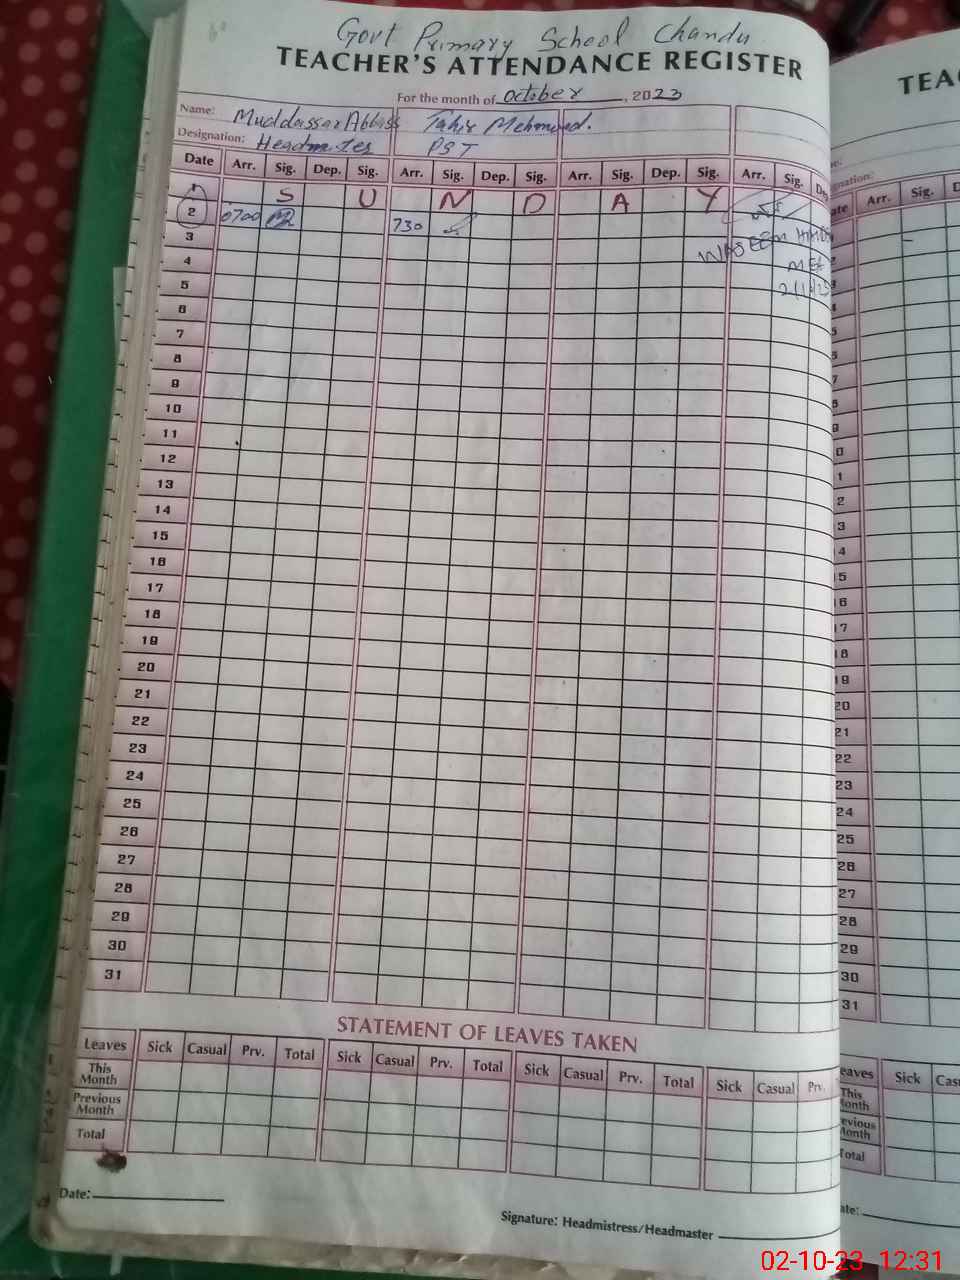 Govt Primary School Chandu
TEACHER'S ATTENDANCE REGISTER
For the month of October, 2023
Name: Muddassar Abbass Tahir Mehmood.
Designation: Headmaster PST
Date Arr. Sig. Dep. Sig. Arr. Sig. Dep. Sig. Arr. Sig. Dep. Sig. Arr. Sig. De
1 S U N D A Y
2 0700 730
3 WASEEM
4 MEA
5
6
7
8
9
10
11
12
13
14
15
16
17
18
19
20
21
22
23
24
25
26
27
28
29
30
31
STATEMENT OF LEAVES TAKEN
Leaves Sick Casual Prv. Total Sick Casual Prv. Total Sick Casual Prv. Total Sick Casual Prv.
This Month
Previous Month
Total
Date:
Signature: Headmistress/Headmaster
TEA
me:
gnation:
ate Arr. Sig. D
2
3
4
5
5
7
8
9
0
1
2
3
4
15
16
17
18
19
20
21
22
23
24
25
26
27
28
29
30
31
eaves Sick Cas
This
Month
evious
Month
Total
ate:
02-10-23 12:31